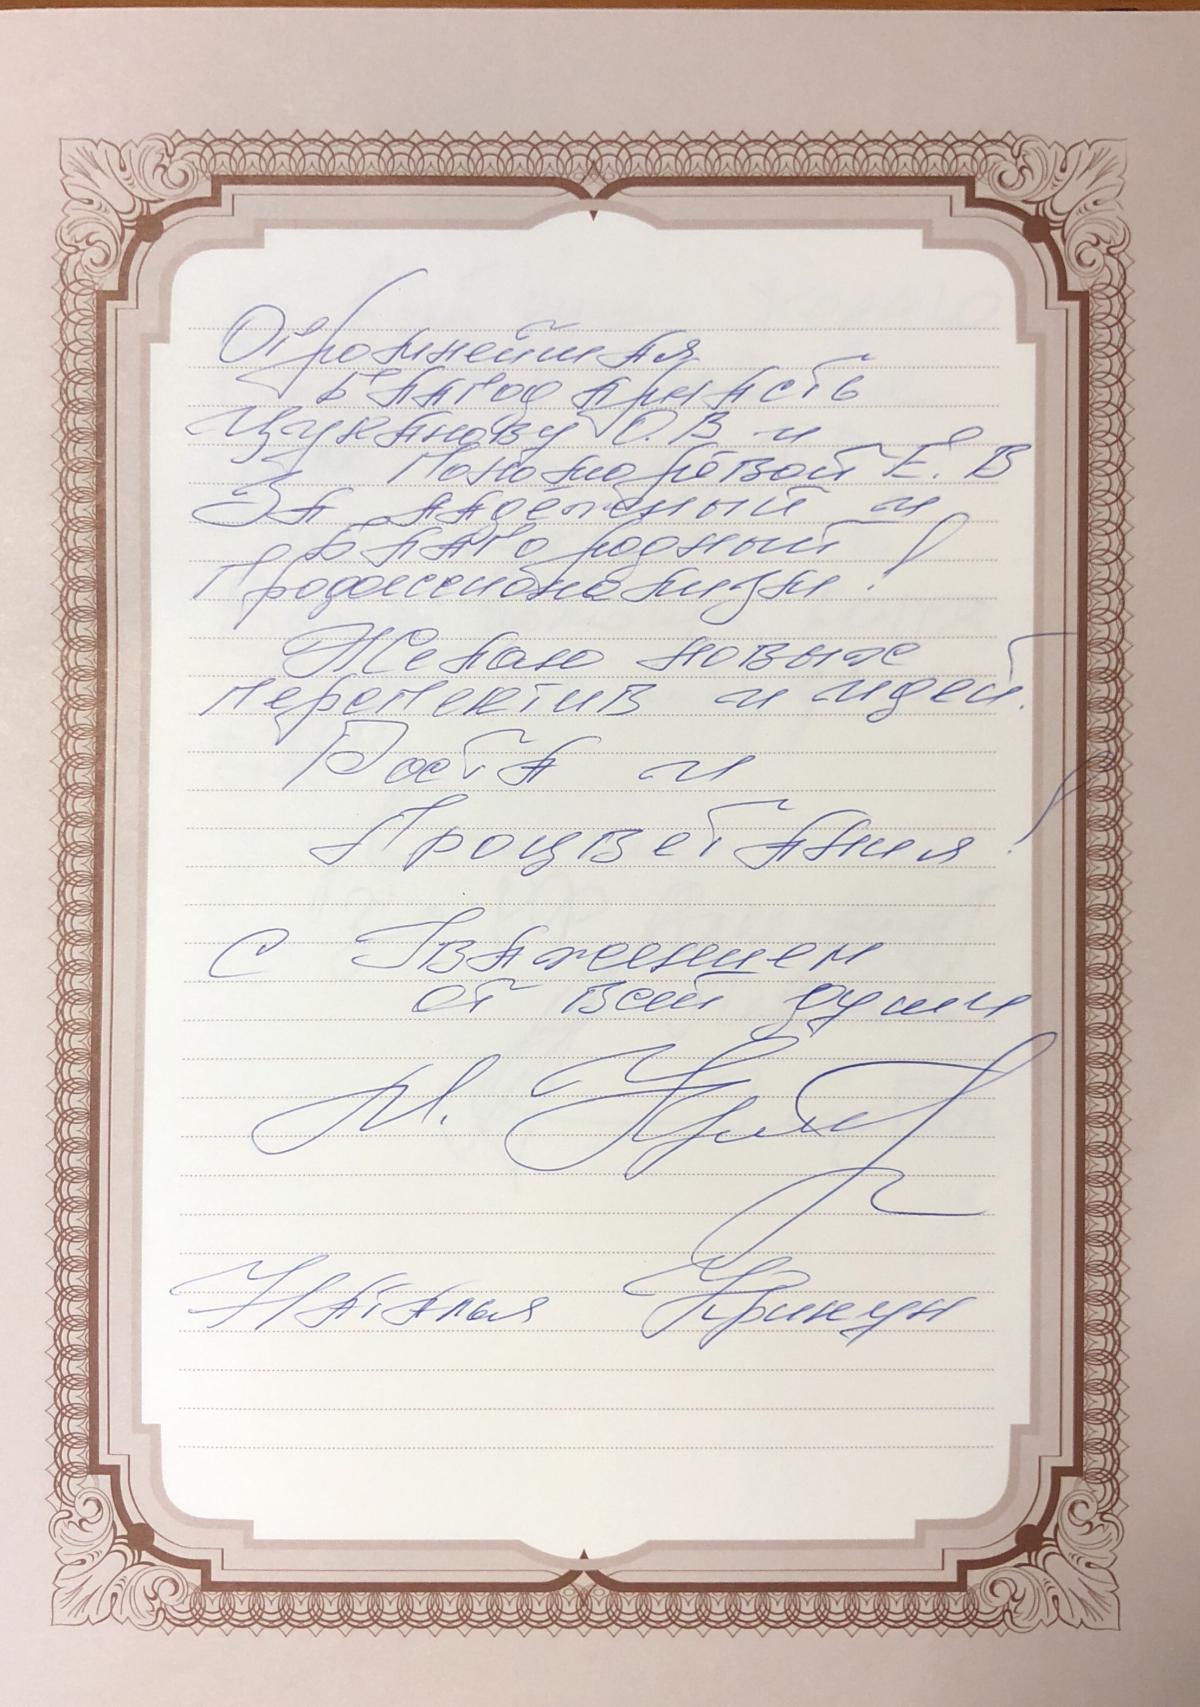 Огромнейшая
благодарность
Цуканову О.В и
Пономарёвой Е.В
За надёжный и
благородный
Профессионализм!
Желаю новых
перспектив и идей.
Роста и
Процветания!
С Уважением
от всей души
Н.
Наталья Крикун